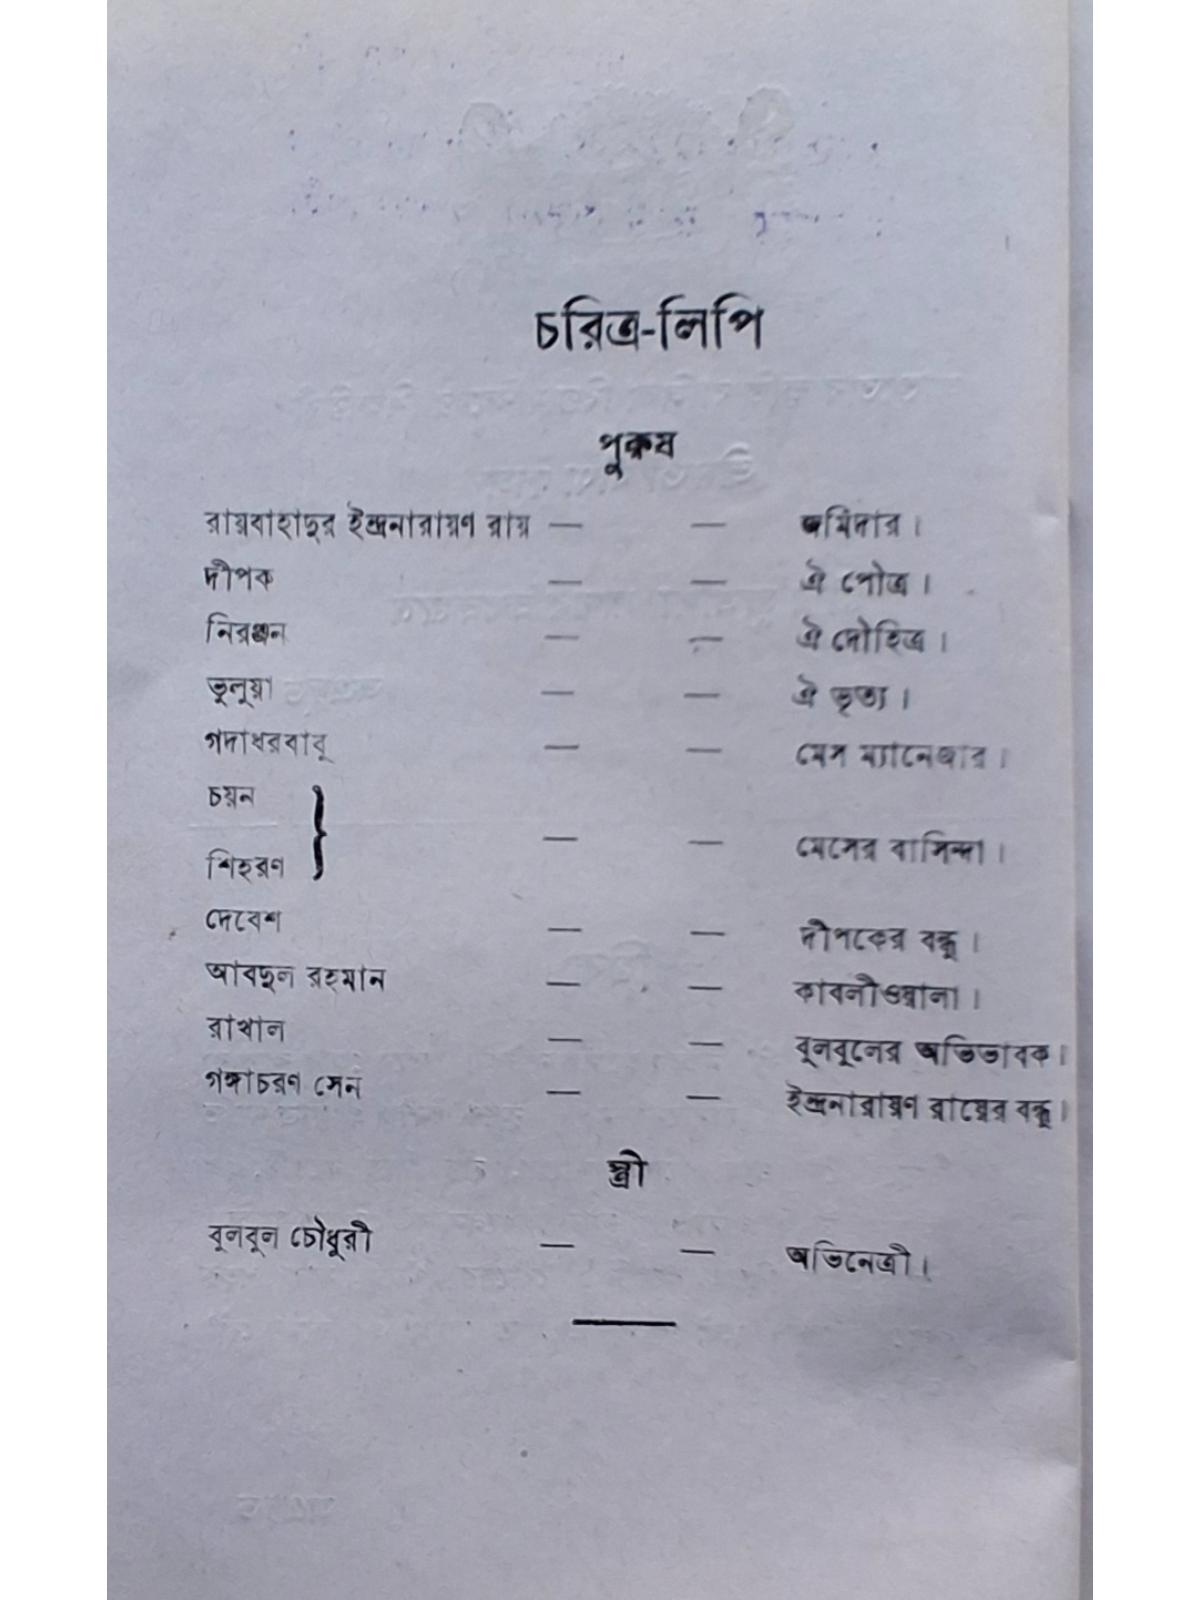 চরিত্র-লিপি
পুরুষ
রায়বাহাদুর ইন্দ্রনারায়ণ রায় — — জমিদার।
দীপক — — ঐ পৌত্র।
নিরঞ্জন — — ঐ দৌহিত্র।
ভুলুয়া — — ঐ ভৃত্য।
গদাধরবাবু — — মেস ম্যানেজার।
চয়ন
শিহরণ } — — মেসের বাসিন্দা।
দেবেশ — — দীপকের বন্ধু।
আবদুল রহমান — — কাবলীওয়ালা।
রাখাল — — বুলবুলের অভিভাবক।
গঙ্গাচরণ সেন — — ইন্দ্রনারায়ণ রায়ের বন্ধু।
স্ত্রী
বুলবুল চৌধুরী — — অভিনেত্রী।